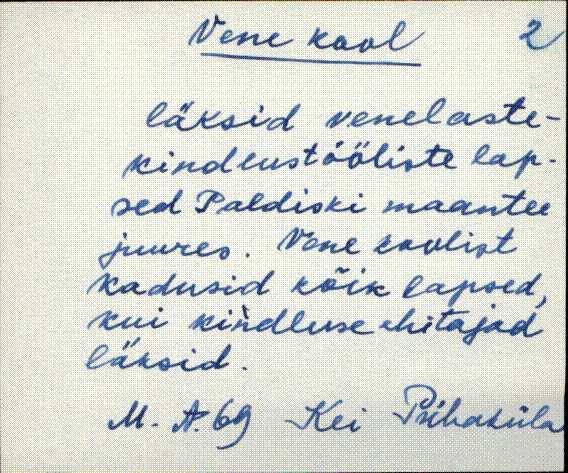 Vene kool 2
läksid venelaste-
kindlustööliste lap-
sed Paldiski maantee
juures. Vene koolist
kadusid kõik lapsed,
kui kindluse ehitajad
läksid.
M. A. 69 Kei Prihaküla